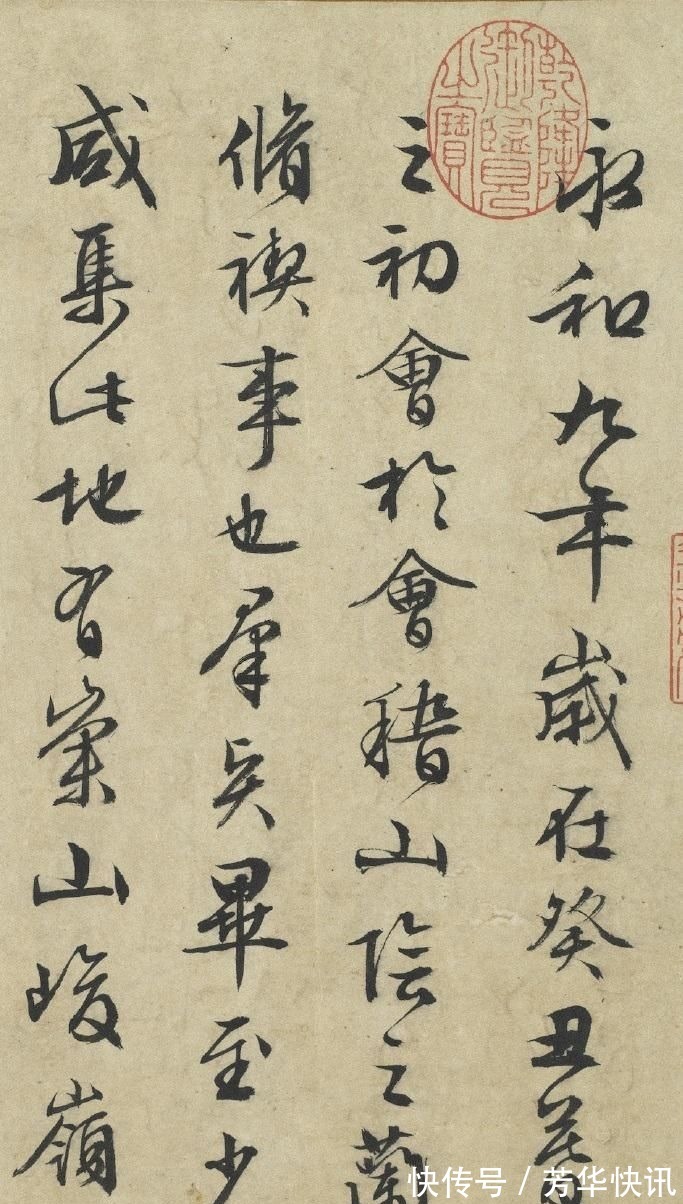 永和九年歲在癸丑暮
之初會於會稽山陰之蘭
脩禊事也羣賢畢至少
咸集此地有崇山峻嶺
乾隆御覽之寶
快传号 / 芳华快讯